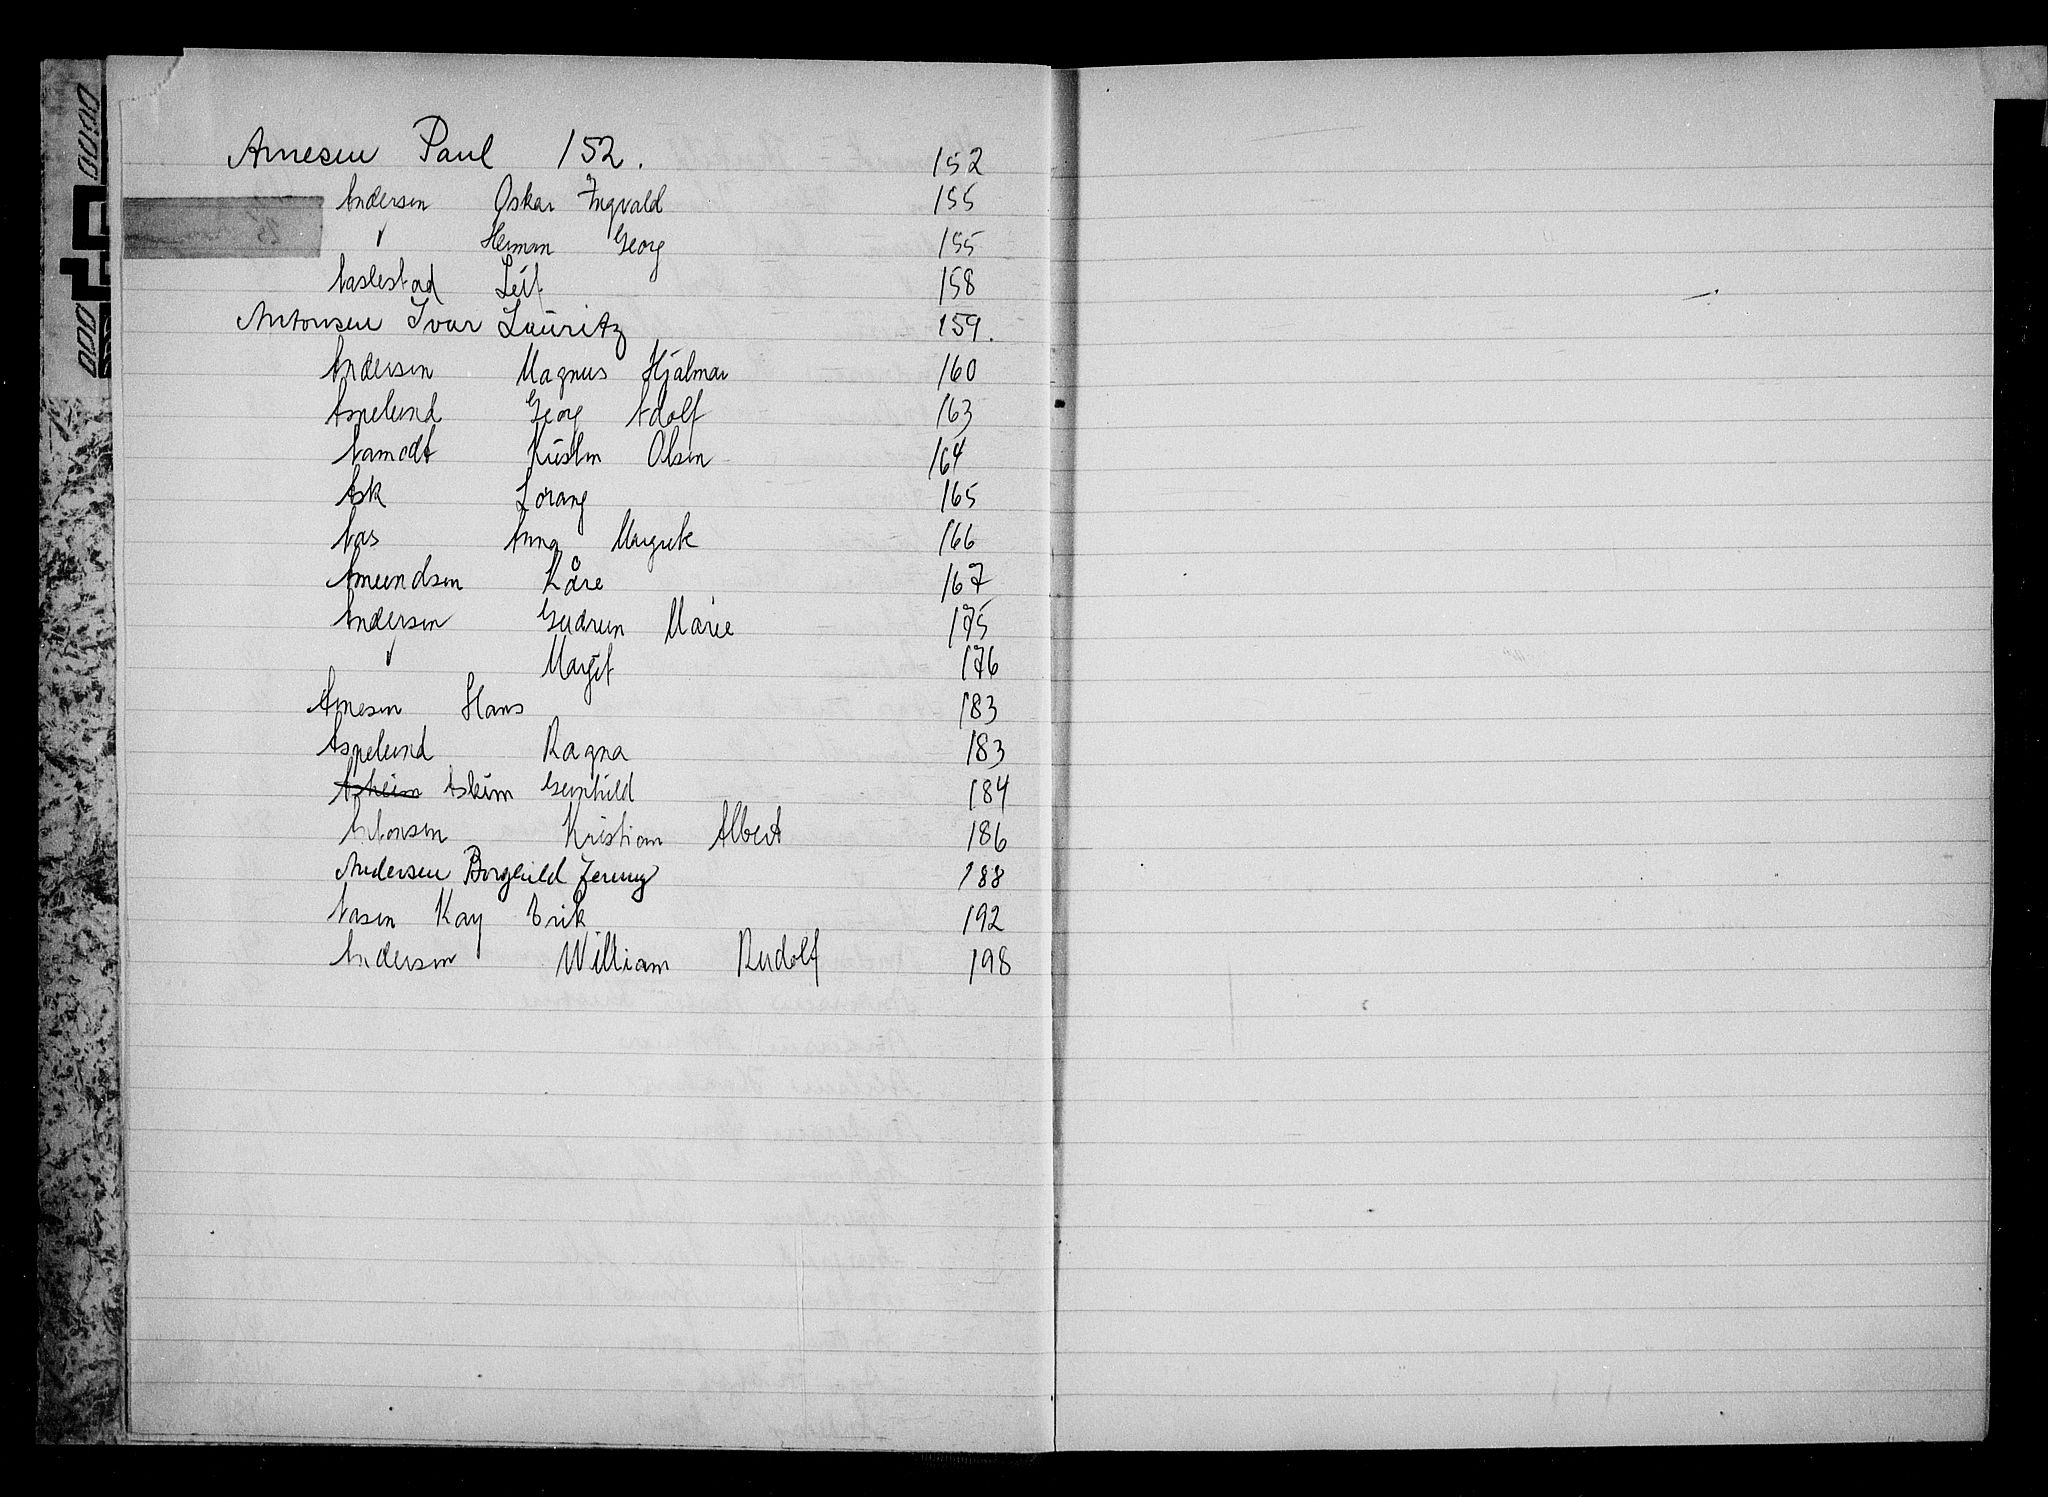 Arnesen Paul 152. 152
Andersen Oskar Ingvald 155
" Herman Georg 155
Aaslestad Leif 158
Antonsen Ivar Lauritz 159.
Andersen Magnus Hjalmar 160
Aspelund Georg Adolf 163
Aamodt Kristen Olsen 164
Ask Lorang 165
Aas Anna Margrete 166
Amundsen Kåre 167
Andersen Gudrun Marie 175
" Margit 176
Arnesen Hans 183
Aspelund Ragna 183
Asheim Askim Gunhild 184
Antonsen Kristian Albert 186
Andersen Borghild Jenny 188
Aasen Kay Erik 192
Andersen William Rudolf 198